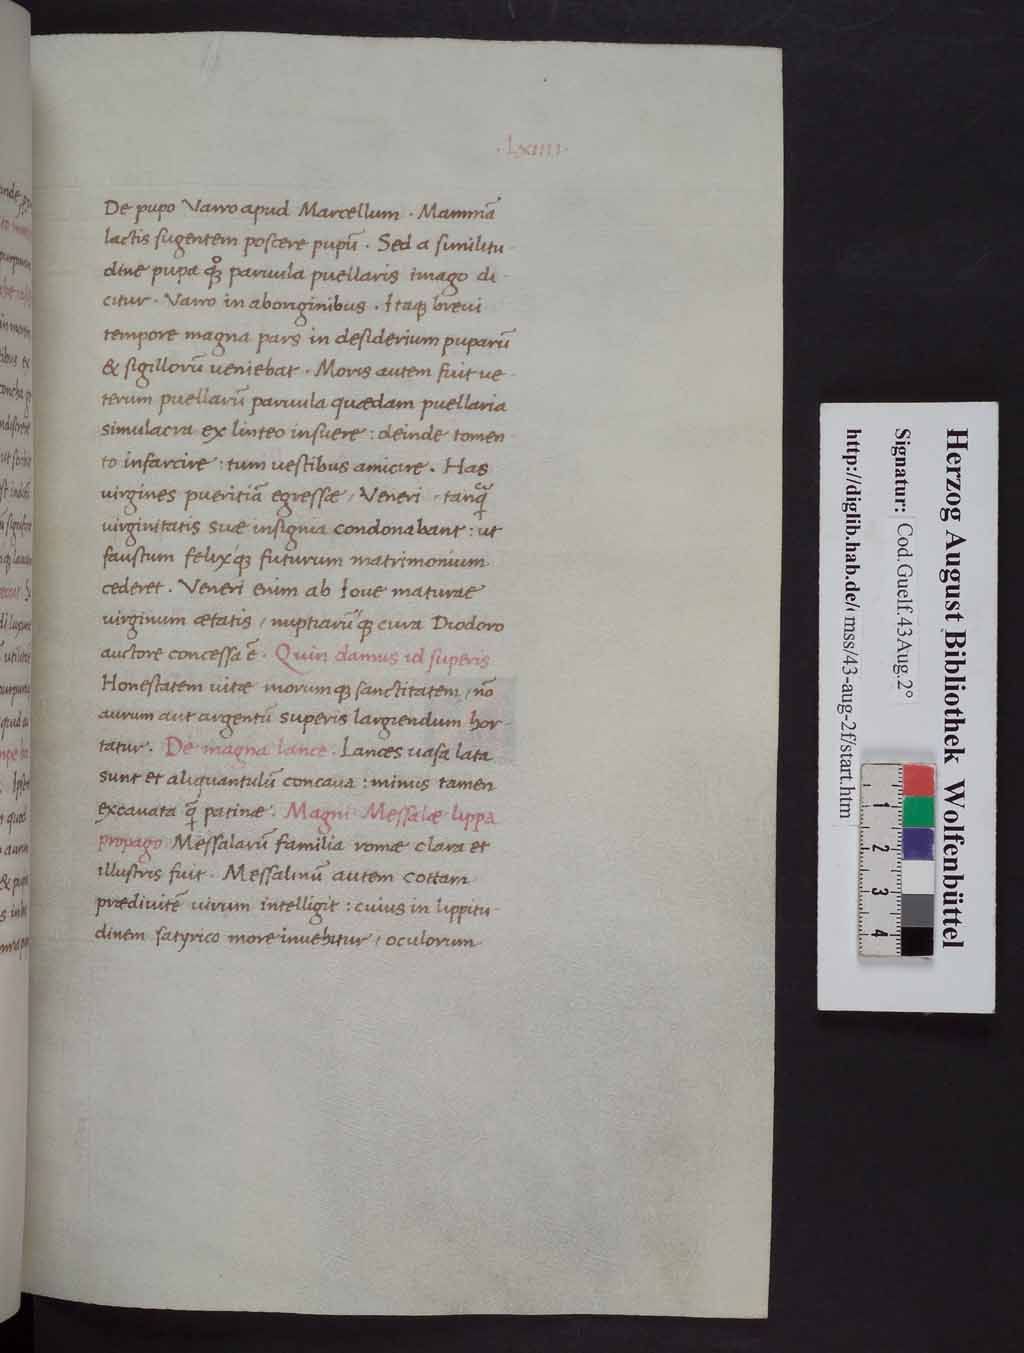 ·Lxiiii·
De pupo Varro apud Marcellum · Mammā
lactis sugentem poscere pupū · Sed a similitu-
dine pupæ ꝙ paruula puellaris imago di-
citur · Varro in aboriginibus · Itaqꝫ breui
tempore magna pars in desiderium puparū
& sigillorū ueniebat · Moris autem fuit ue-
terum puellarū paruula quædam puellaria
simulacra ex linteo insuere : deinde tomen
to infarcire : tum uestibus amicire . Has
uirgines pueritiā egressæ / Veneri / tanꝗ̃
uirginitatis suæ insignia condonabant : ut
faustum felixqꝫ futurum matrimonium
cederet . Veneri enim ab Ioue maturae
uirginum ætatis / nuptiarūqꝫ cura Diodoro
auctore concessa ē . Quin damus id superis
Honestatem uitæ morumqꝫ sanctitatem / nō
aurum aut argentū superis largiendum hor-
tatur . De magna lance . Lances uasa lata
sunt et aliquantulū concaua : minus tamen
excauata ꝗ̃ patinæ . Magni Messalæ lippa
propago Messalarū familia romæ clara et
illustris fuit . Messalinū autem cottam
prædiuitē uirum intelligit : cuius in lippitu-
dinem satyrico more inuehitur / oculorum
Herzog August Bibliothek Wolfenbüttel
Signatur: Cod.Guelf.43 Aug.2°
http://diglib.hab.de/mss/43-aug-2f/start.htm
1 2 3 4